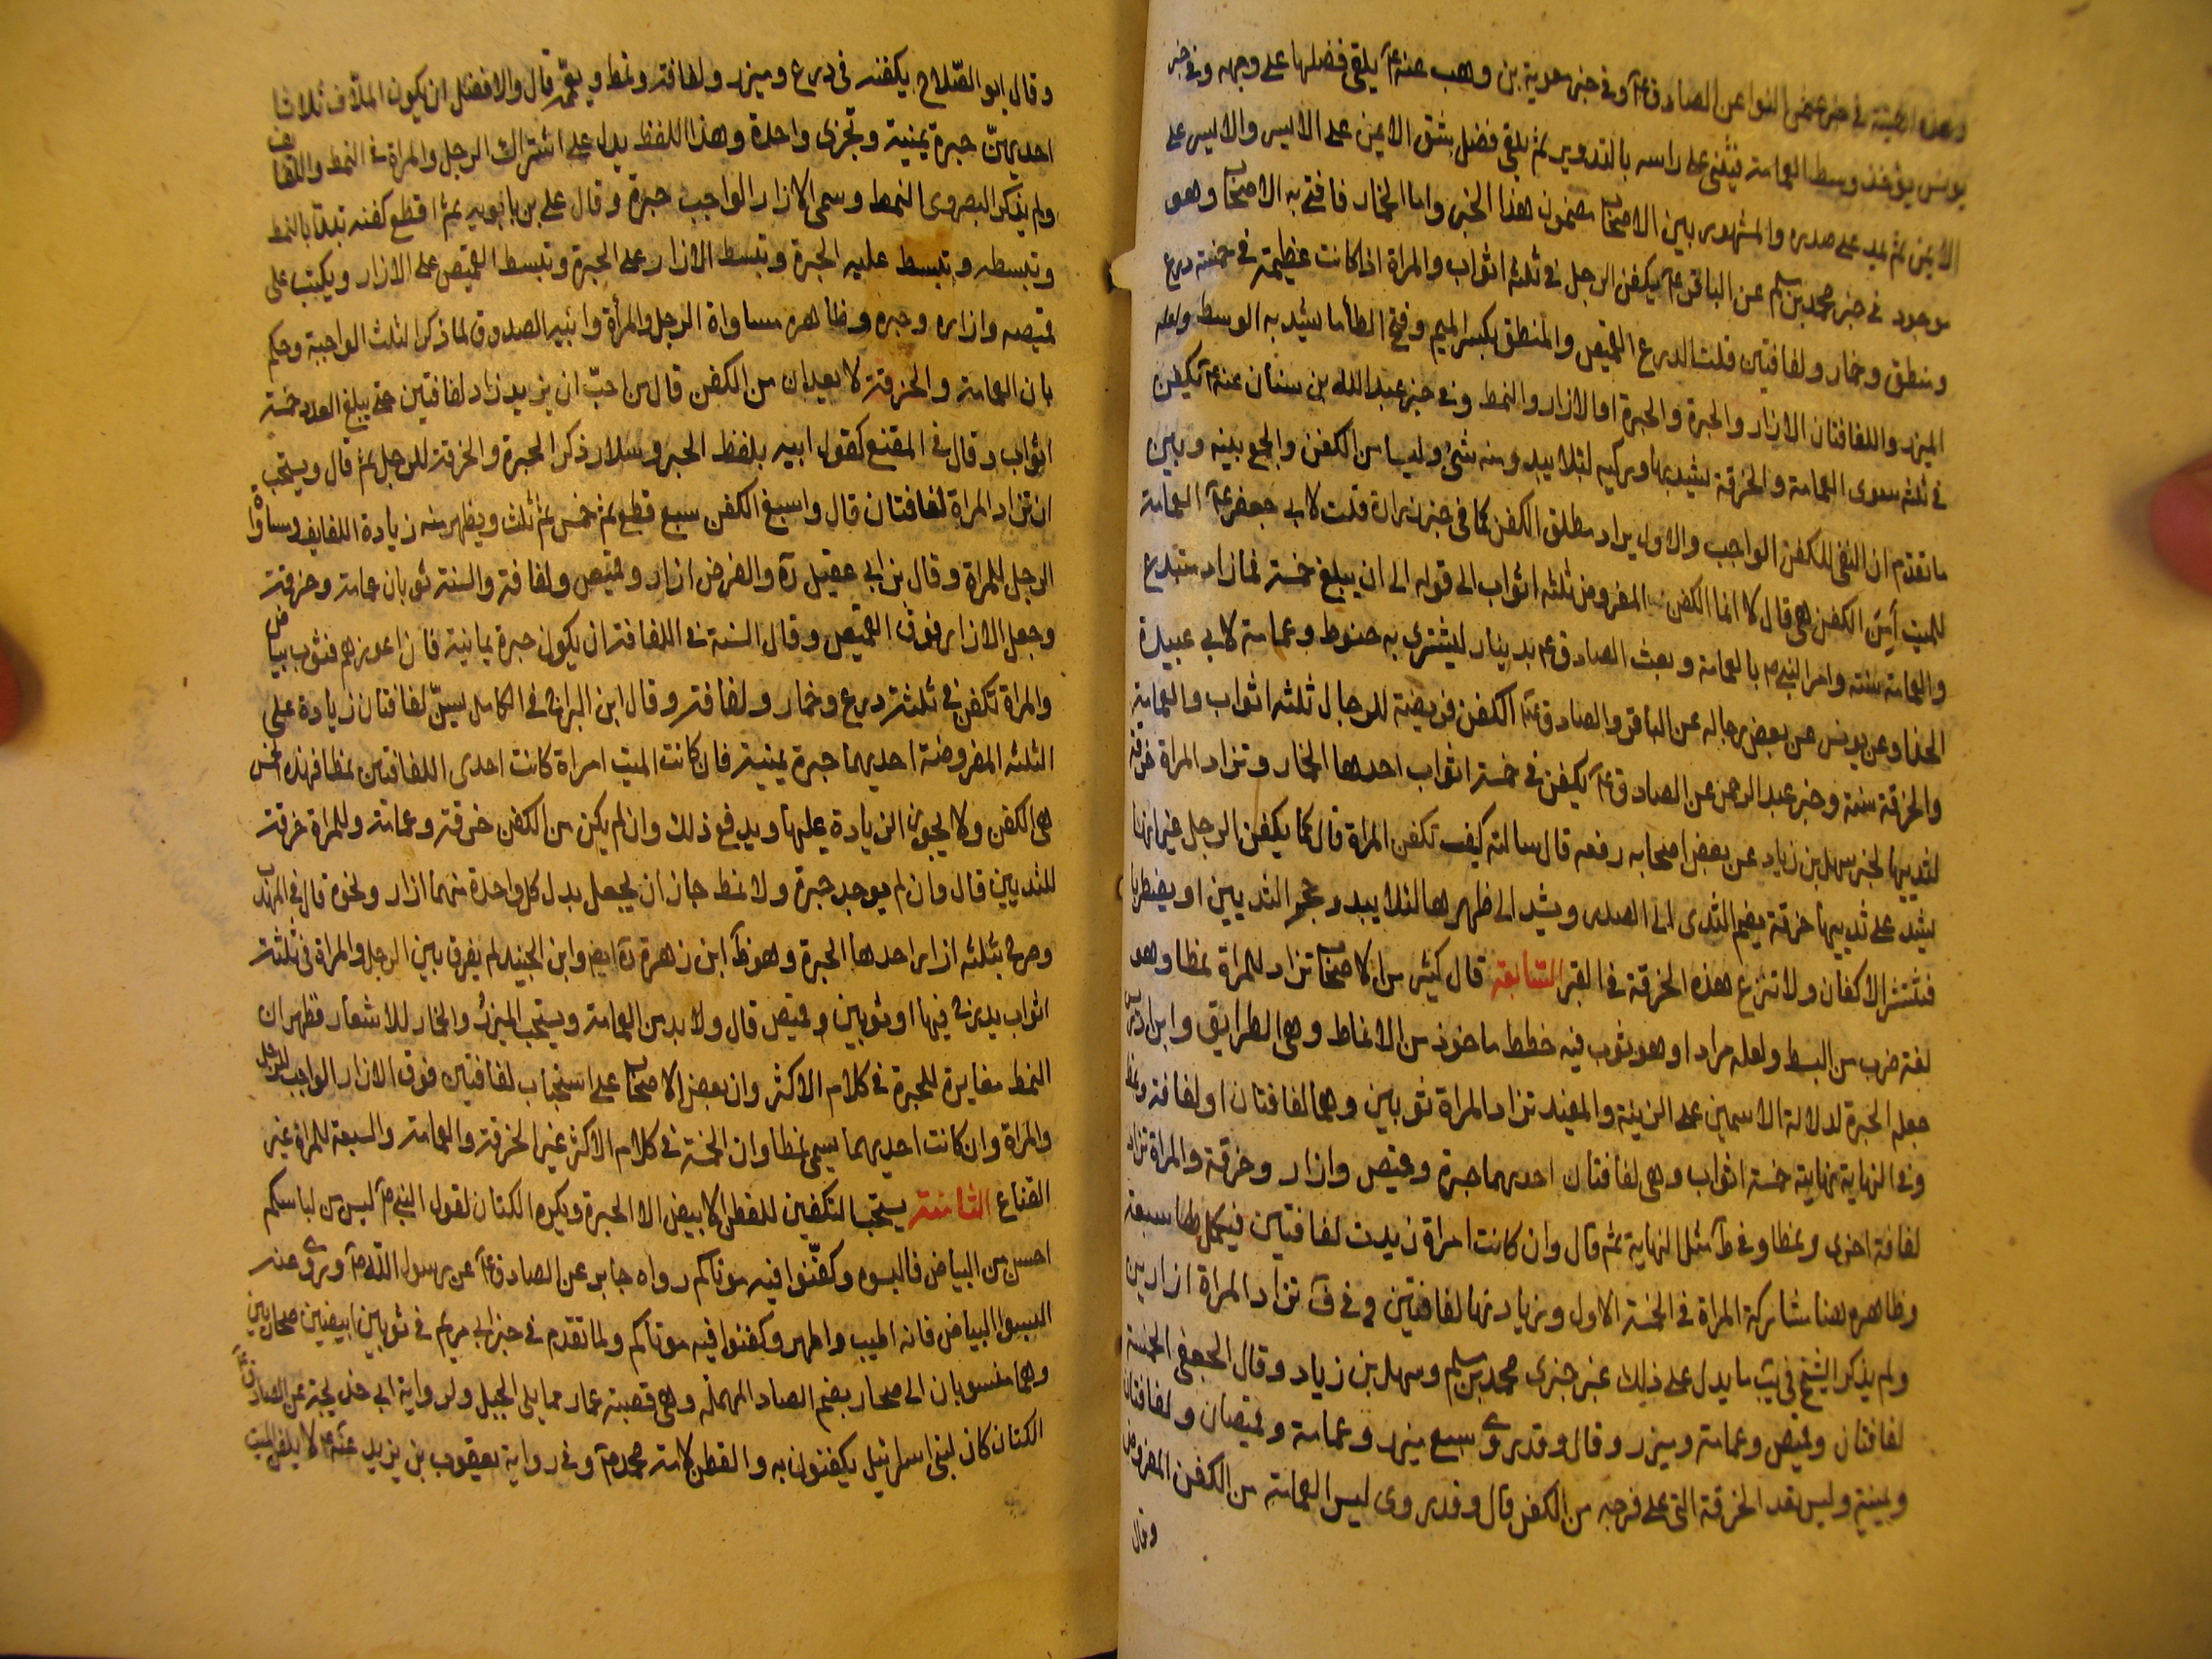 وهذه الهيئة في خبر عثمن النوا عن الصادق ع۴ وفي خبر معوية بن وهب عنه ع۴ يلقى فضلها على وجهه وفي خبر
يونس يؤخذ وسط العمامة فيثنى على راسه بالتدوير ثم يلقى فضل بشق الايمن على الايسر والايسر على
الايمن ثم يمد على صدره والمشهور بين الاصحاب مضمون هذا الخبر واما الخمار فافتى به الاصحاب وهو
موجود في خبر محمد بن مسلم عن الباقر ع۴ يكفن الرجل في ثلثه اثواب والمراة اذا كانت عظيمة في خمسة درع
ومنطق وخمار ولفافتين قلت الدرع القميص والمنطق بكسر الميم وفتح الطا ما يشد به الوسط ولعله
الميزر واللفافتان الازار والحبرة والحبرة او الازار والنمط وفي خبر عبدالله بن سنان عنه ع۴ تكفين
في ثلثه سوى العمامة والخرقة ليشد بها وركيه لئلا يبدو منه شئ وليسا من الكفن والجمع بينه وبين
ما تقدم ان النفى للكفن الواجب والاول يراد مطلق الكفن كما في خبر زرارة قلت لابي جعفر ع۴ العمامة
للميت أمن الكفن هى قال لا انما الكفن المفروض ثلثه اثواب الى قوله الى ان يبلغ خمسة فما زاد مبتدع
والعمامة سنة وامر النبي ص بالعمامة وبعث الصادق ع۴ بدينار ليشترى به حنوط وعمامة لابي عبيدة
الحذا وعن يونس عن بعض رجاله عن الباقر والصادق ع۴ الكفن فريضة للرجال ثلثه اثواب والعمامة
والخرقة سنة وخبر عبد الرحمن عن الصادق ع۴ يكفن في خمسة اثواب احدها الخمار وتزاد المراة خرقة
لثدييها لخبر سهل بن زياد عن بعض اصحابه رفعه قال سالته كيف تكفن المراة قال كما يكفن الرجل غير انها
يشد على ثدييها خرقة يضم الثدى الى الصدر ويشد الى ظهرها لئلا يبدو حجم الثديين او يضطربا
فتنتشر الاكفان ولا تنزع هذه الخرقة في القبر السابعة قال كثير من الاصحاب تزاد للمراة نمطا وهو
لغة ضرب من البسط ولعله مراد او هو ثوب فيه خطط ماخوذ من الانماط وهى الطرايق وابن ادريس
جعله الحبرة لدلالة الاسمين على الزينة والمفيد تزاد المراة ثوبين وهما لفافتان او لفافة ونمط
وفي النهاية نهايته خمسة اثواب وهى لفافتان احديهما حبرة وقميص وازار وخرقة والمراة تزاد
لفافة اخرى ونمطا وفي ط مثل النهاية ثم قال وان كانت امراة زيدت لفافتين فيكمل لها سبعة
وظاهره هنا مشاركة المراة في الخمسة الاول وبزيادتها لفافتين وفي ف تزاد المراة ازارين
ولم يذكر الشيخ في يب ما يدل على ذلك غير خبرى محمد بن مسلم وسهل بن زياد وقال الجعفى الخمسة
لفافتان وقميص وعمامة وميزر وقال وقد روى سبع ميزر وعمامة وقميصان ولفافتان
ويمنية وليس تعد الخرقة التى على فرجه من الكفن قال وقد روى ليس العمامة من الكفن المفروض
وقال
وقال ابو الصّلاح يكفنه في درع وميزر ولفافة ونمط ويعممه قال والافضل ان يكون الملاف ثلاثا
احديهنّ حبرة يمنية وتجزى واحدة وهذا اللفظ يدل على اشتراك الرجل والمراة في النمط واللفايف
ولم يذكر البصروى النمط وسمى الازار الواجب حبرة وقال على بن بابويه ثم اقطع كفنه تبدا بالنمط
وتبسطه وتبسط عليه الحبرة وتبسط الازار على الحبرة وتبسط القميص على الازار ويكتب على
قميصه وازاره وحبره وظاهره مساواة الرجل والمرأة وابنه الصدوق لما ذكر الثلث الواجبة وحكم
بان العمامة والخرقة لا يعدان من الكفن قال من احبّ ان يزيد زاد لفافتين حتى يبلغ العدد خمسة
اثواب وقال في المقنع كقول ابيه بلفظ الخبر وسلار ذكر الحبرة والخرقة للرجل ثم قال ويستحب
ان تزاد المراة لفافتان قال واسبغ الكفن سبع قطع ثم خمس ثم ثلث ويظهر منه زيادة اللفايف ومساواة
الرجل للمراة وقال بن ابي عقيل ره والفرض ازار وقميص ولفافة والسنة ثوبان عمامة وخرقة
وجعل الازار فوق القميص وقال السنة في اللفافة ان يكون حبرة يمانية فان اعوزهم فثوب بياض
والمراة تكفن في ثلثة درع وخمار ولفافة وقال ابن البراج في الكامل يسنّ لفافتان زيادة على
الثلثه المفروضة احديهما حبرة يمنية فان كانت الميت امراة كانت احدى اللفافتين نمطا فهذه الخمس
هى الكفن ولا يجوز الزيادة عليها ويدفع ذلك وان لم يكن من الكفن خرقة وعمامة وللمراة خرقة
للثديين قال وان لم يوجد حبرة ولا نمط جاز ان يجعل بدل كل واحدة منهما ازار ونحوه قال في المهذب
وصرح بثلثه ازار احدها الحبرة وهو ظ ابن زهرة ره ايضا وابن الجنيد لم يفرق بين الرجل والمراة في ثلثة
اثواب يدرج فيها او ثوبين وقميص قال ولا بد من العمامة ويستحب الميزر والخمار للاشعار فظهر ان
النمط مغايرة للحبرة في كلام الاكثر وان بعض الاصحاب على استحباب لفافتين فوق الازار الواجب للرجل
والمراة وان كانت احديهما يسمى نمطا وان الخمسة في كلام الاكثر غير الخرقة والعمامة والسبعة للمراة غير
القناع الثامنة يستحب التكفين للقطن الابيض الا الحبرة ويكره الكتان لقول النبي ص ليس من لباسكم
احسن من البياض فالبسوه وكفّنوا فيه موتاكم رواه جابر عن الصادق ع۴ عن رسول الله ص وروى عنه
البسوا البياض فانه اطيب واطهر وكفنوا فيه موتاكم ولما تقدم في خبر ابي مريم في ثوبين ابيضين صحاريين
وهما منسوبان الى صحار بضم الصاد المهملة وهى قصبة عمان مما يلى الجبل ولرواية ابي خديجة عن الصادق ع۴
الكتان كان لبنى اسرائيل يكفنون به والقطن لامة محمد ص وفي رواية يعقوب بن يزيد عنه ع۴ لا يكفن الميت